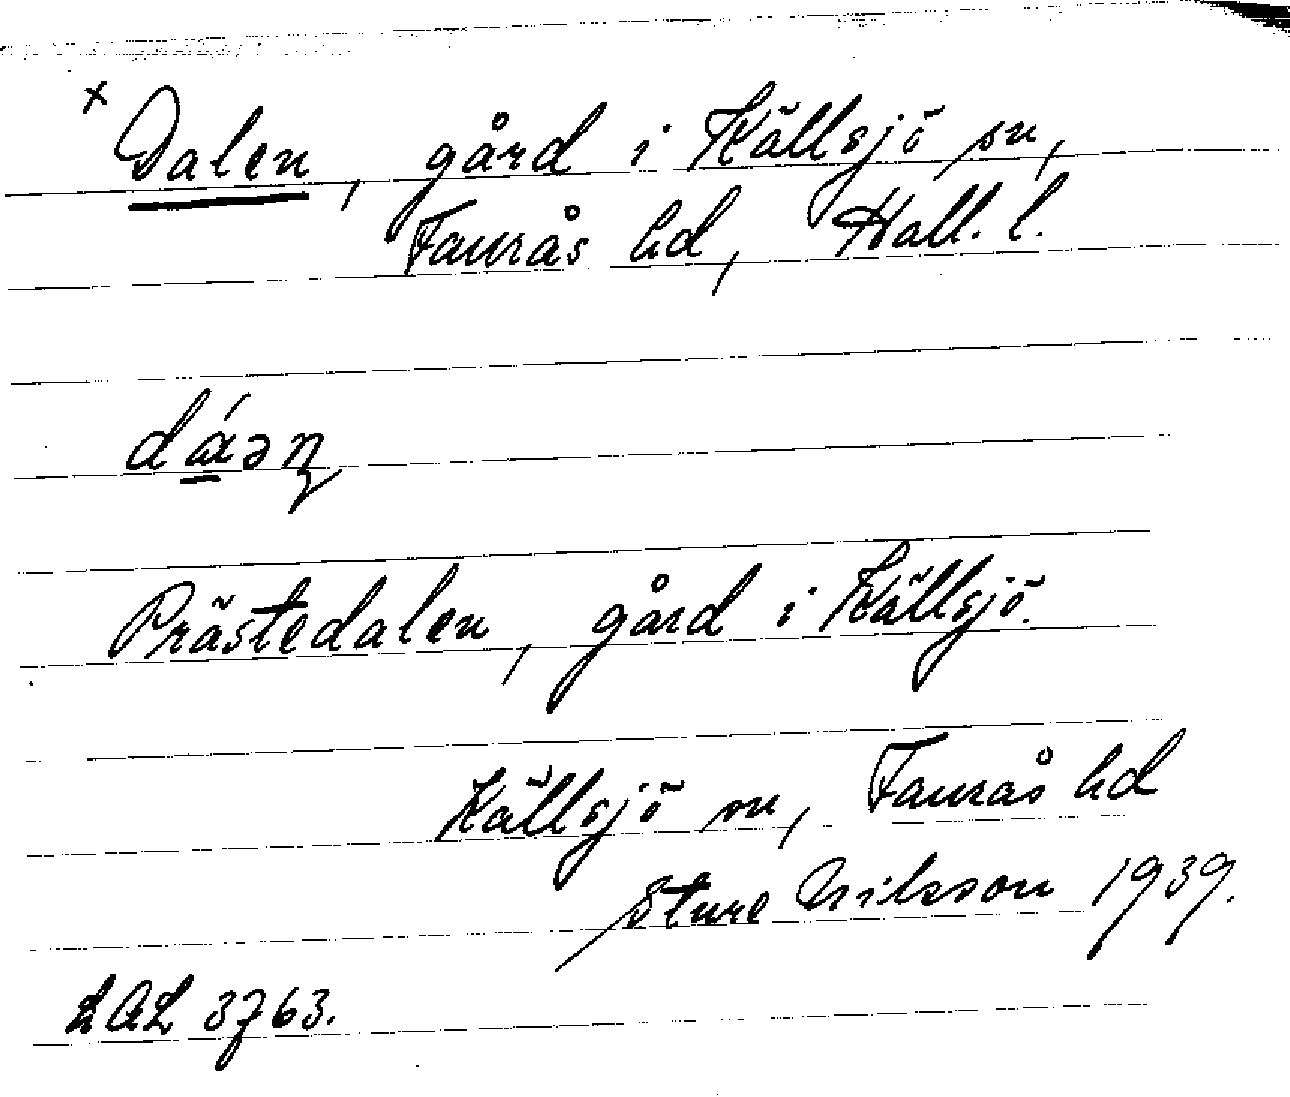 x Dalen, gård i Källsjö sn,
Faurås hd, Hall. l.
dáən
Prästedalen, gård i Källsjö.
Källsjö sn, Faurås hd
Sture Nilsson 1939.
LAL 3763.